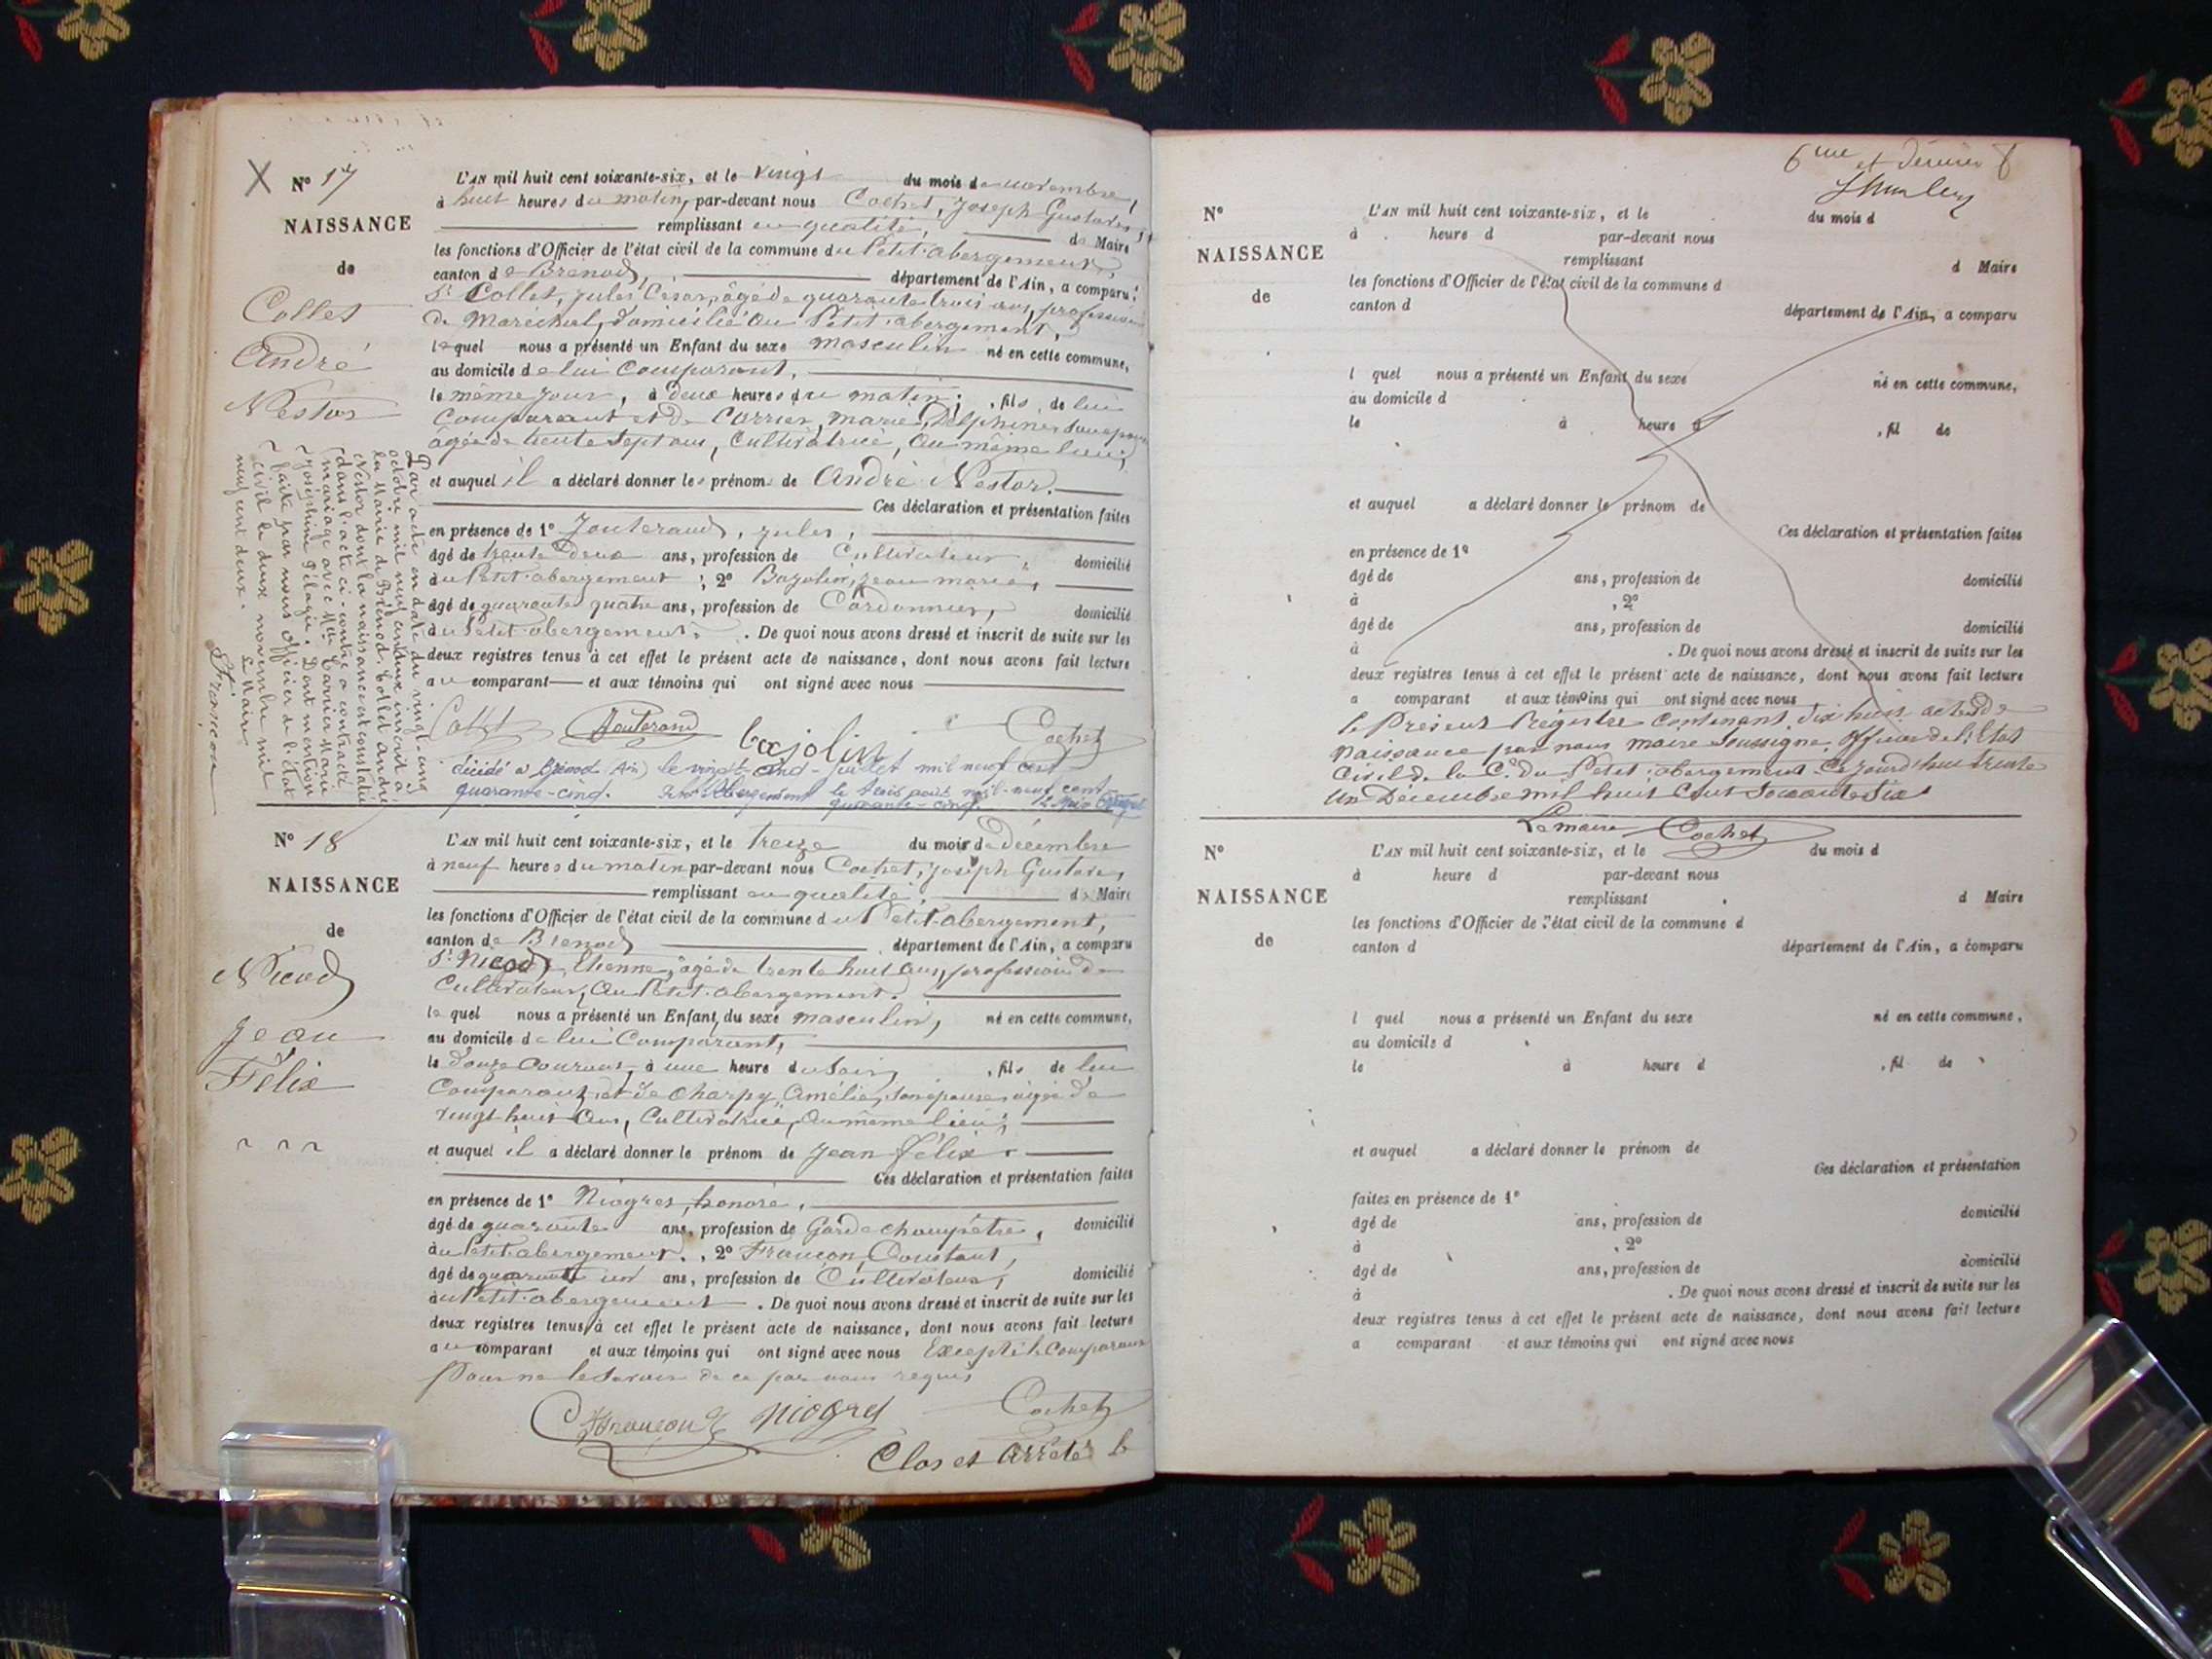 N° 17
NAISSANCE
de
Collet
André
Nestor
L'AN mil huit cent soixante-six, et le vingt du mois de novembre,
à huit heures du matin, par-devant nous Cochet, Joseph Gustave,
remplissant en qualité, de Maire
les fonctions d'Officier de l'état civil de la commune du Petit-abergement,
canton de Brenod, département de l'Ain, a comparu,
Sr Collet, Jules César, âgé de quarante trois ans, profession
de Maréchal, domicilié au Petit-abergement,
lequel nous a présenté un Enfant du sexe masculin né en cette commune,
au domicile de lui Comparant,
le même jour, à deux heures du matin; , fils de lui
Comparant et de Carrier, Marie Delphine son épouse
âgée de trente sept ans, Cultivatrice, au même lieu,
et auquel il a déclaré donner les prénoms de André Nestor.
Ces déclaration et présentation faites
en présence de 1° Jouterand, Jules,
âgé de trente deux ans, profession de Cultivateur, domicilié
au Petit-abergement ; 2° Bajolin, Jean marie,
âgé de quarante quatre ans, profession de Cordonnier, domicilié
au Petit-abergement. . De quoi nous avons dressé et inscrit de suite sur les
deux registres tenus à cet effet le présent acte de naissance, dont nous avons fait lecture
au comparant et aux témoins qui ont signé avec nous
Collet Jouterand Bajolin Cochet
décédé à Brénod (Ain) le vingt-cinq juillet mil neuf cent
quarante-cinq. Petit Abergement le trois août mil neuf cent
quarante-cinq.
Par acte en date du vingt-cinq
octobre mil neuf cent deux inscrit à
la Mairie de Brénod, Collet André
Nestor dont la naissance est constatée
dans l'acte ci-contre a contracté
mariage avec Mlle Carrier Marie
Joséphine Pélagie. Dont mention
faite par nous Officier de l'état
civil le deux novembre mil
neuf cent deux. Le Maire
Françon
N° 18
NAISSANCE
de
Nicod
Jean
Félix
L'AN mil huit cent soixante-six, et le treize du mois de décembre
à neuf heures du matin par-devant nous Cochet, Joseph Gustave,
remplissant en qualité, de Maire
les fonctions d'Officier de l'état civil de la commune du Petit-abergement,
canton de Brenod département de l'Ain, a comparu
Sr Nicod, Etienne, âgé de trente huit ans, profession de
Cultivateur, au Petit-abergement.
lequel nous a présenté un Enfant du sexe masculin, né en cette commune,
au domicile de lui Comparant,
le douze courant, à une heure du soir, , fils de lui
Comparant, et de Charpy, Amélie, son épouse, âgée de
vingt huit ans, Cultivatrice, au même lieu;
et auquel il a déclaré donner le prénom de Jean Félix.
Ces déclaration et présentation faites
en présence de 1° Niogret, honoré,
âgé de quarante ans, profession de Garde champêtre, domicilié
au Petit-abergement. , 2° Françon, Constant,
âgé de quarante un ans, profession de Cultivateur, domicilié
au Petit-abergement . De quoi nous avons dressé et inscrit de suite sur les
deux registres tenus à cet effet le présent acte de naissance, dont nous avons fait lecture
au comparant et aux témoins qui ont signé avec nous Excepté le Comparant
pour ne le savoir de ce par nous requis
Françon Niogret Cochet
Clos et arrêté le
6me et dernier f
N°
NAISSANCE
de
L'AN mil huit cent soixante-six, et le du mois d
à heure d par-devant nous
remplissant d Maire
les fonctions d'Officier de l'état civil de la commune d
canton d département de l'Ain, a comparu
l quel nous a présenté un Enfant du sexe né en cette commune,
au domicile d
le à heure d , fil de
et auquel a déclaré donner le prénom de
Ces déclaration et présentation faites
en présence de 1°
âgé de ans, profession de domicilié
à , 2°
âgé de ans, profession de domicilié
à . De quoi nous avons dressé et inscrit de suite sur les
deux registres tenus à cet effet le présent acte de naissance, dont nous avons fait lecture
a comparant et aux témoins qui ont signé avec nous
le Présent Registre Contenant dix huit actes de
Naissance par nous maire soussigné, Officier de l'Etat
Civil de la Ce du Petit-abergement. Ce jourd'hui trente
un Décembre mil huit Cent soixante Six
Le maire Cochet
N°
NAISSANCE
de
L'AN mil huit cent soixante-six, et le du mois d
à heure d par-devant nous
remplissant d Maire
les fonctions d'Officier de l'état civil de la commune d
canton d département de l'Ain, a comparu
l quel nous a présenté un Enfant du sexe né en cette commune,
au domicile d
le à heure d , fil de
et auquel a déclaré donner le prénom de
Ces déclaration et présentation
faites en présence de 1°
âgé de ans, profession de domicilié
à , 2°
âgé de ans, profession de domicilié
à . De quoi nous avons dressé et inscrit de suite sur les
deux registres tenus à cet effet le présent acte de naissance, dont nous avons fait lecture
a comparant et aux témoins qui ont signé avec nous